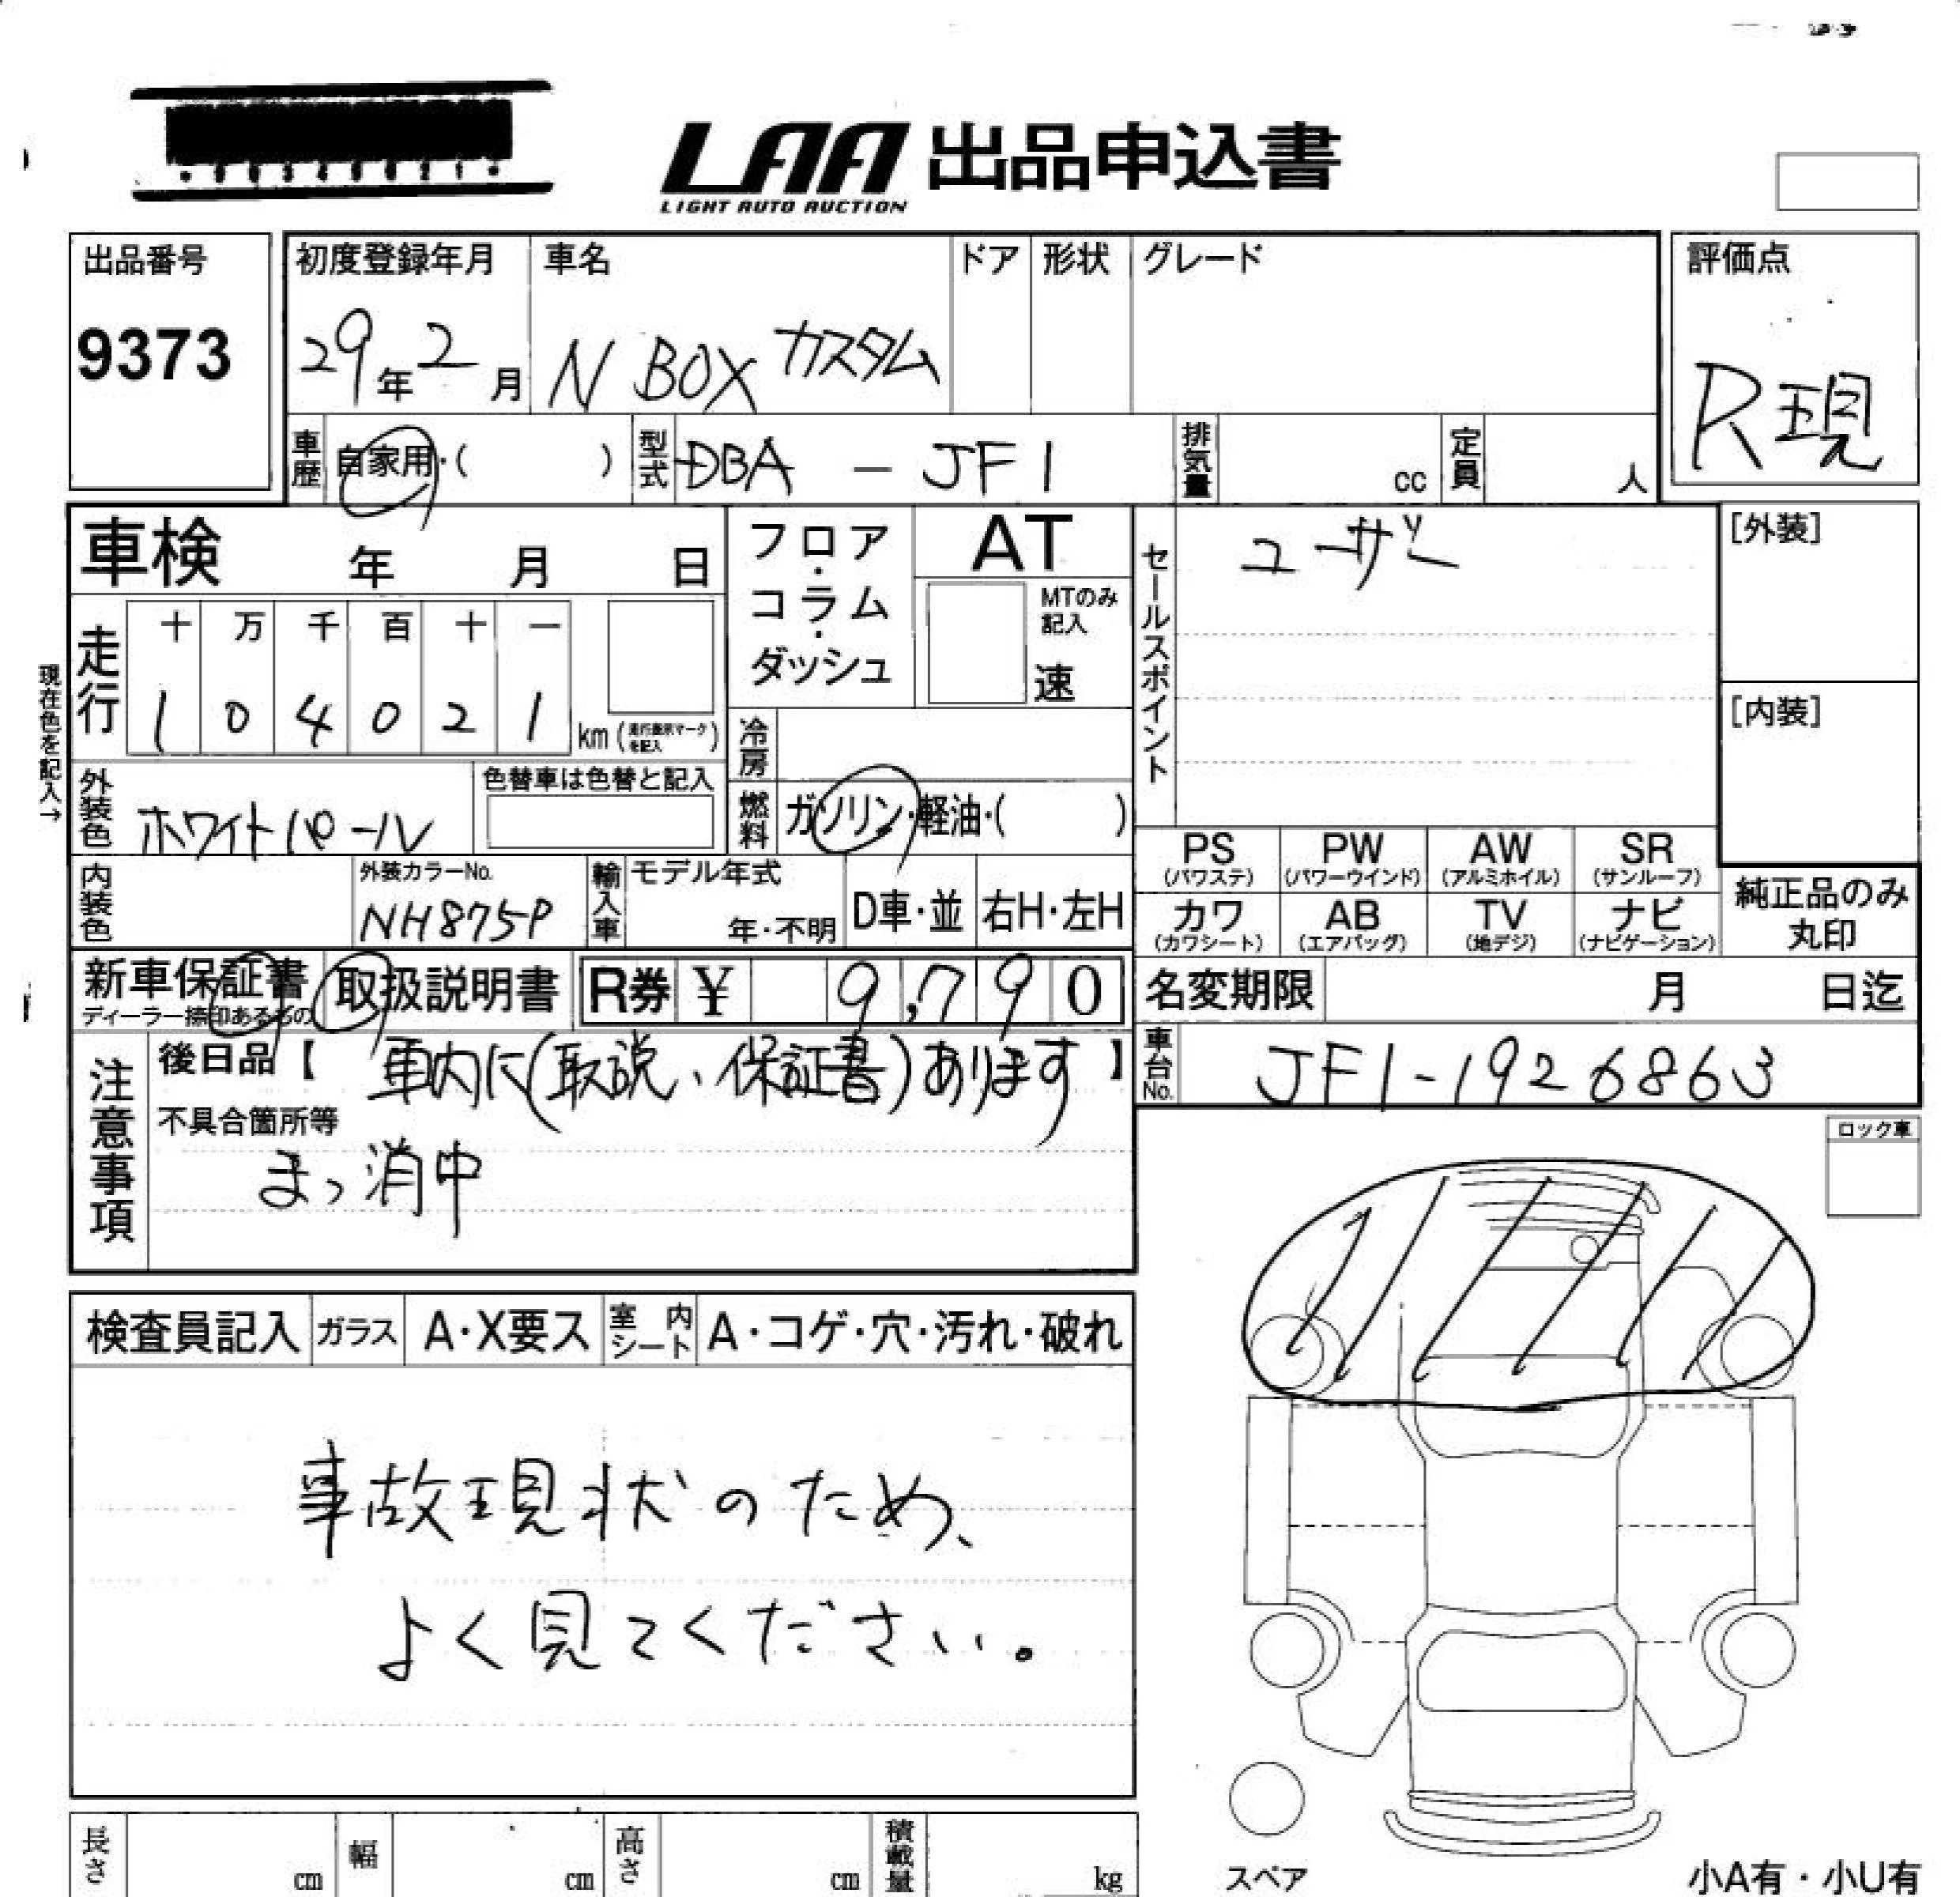 LAA 出品申込書
LIGHT AUTO AUCTION
出品番号
9373
初度登録年月
29年2月
車名
N BOX カスタム
ドア
形状
グレード
評価点
R現
車歴
自家用・( )
型式
DBA - JF1
排気量
cc
定員
人
車検 年 月 日
フロア・コラム・ダッシュ
AT
MTのみ記入
速
セールスポイント
ユーザー
[外装]
[内装]
現在色を記入→
走行
十 万 千 百 十 一
1 0 4 0 2 1 km
冷房
燃料
ガソリン・軽油・( )
外装色
ホワイトパール
色替車は色替と記入
内装色
外装カラーNo.
NH875P
輸入車
モデル年式
年・不明
D車・並
右H・左H
PS (パワステ)
PW (パワーウインド)
AW (アルミホイル)
SR (サンルーフ)
カワ (カワシート)
AB (エアバッグ)
TV (地デジ)
ナビ (ナビゲーション)
純正品のみ丸印
新車保証書
ディーラー捺印あるもの
取扱説明書
R券 ¥ 9,790
名変期限 月 日迄
車台No.
JF1-1926863
注意事項
後日品【 車内に(取説、保証書)あります 】
不具合箇所等
まっ消中
ロック車
検査員記入
ガラス
A・X要ス
室内シート
A・コゲ・穴・汚れ・破れ
事故現状のため、
よく見てください。
長さ cm
幅 cm
高さ cm
積載量 kg
スペア
小A有・小U有